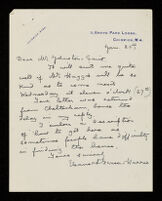 2, GROVE PARK LODGE,
CHISWICK, W.4.
Jan. 25th
Dear Mr Johnston-Saint
It will suit me quite
well if Mr Haggis will be so
kind as to come next
Wednesday at eleven o'clock (27th)
Your letter was returned
from Cheltenham hence the
delay in my reply.
I enclose a description
of how to get here as
sometimes people have difficulty
in finding the house.
Yours sincerely